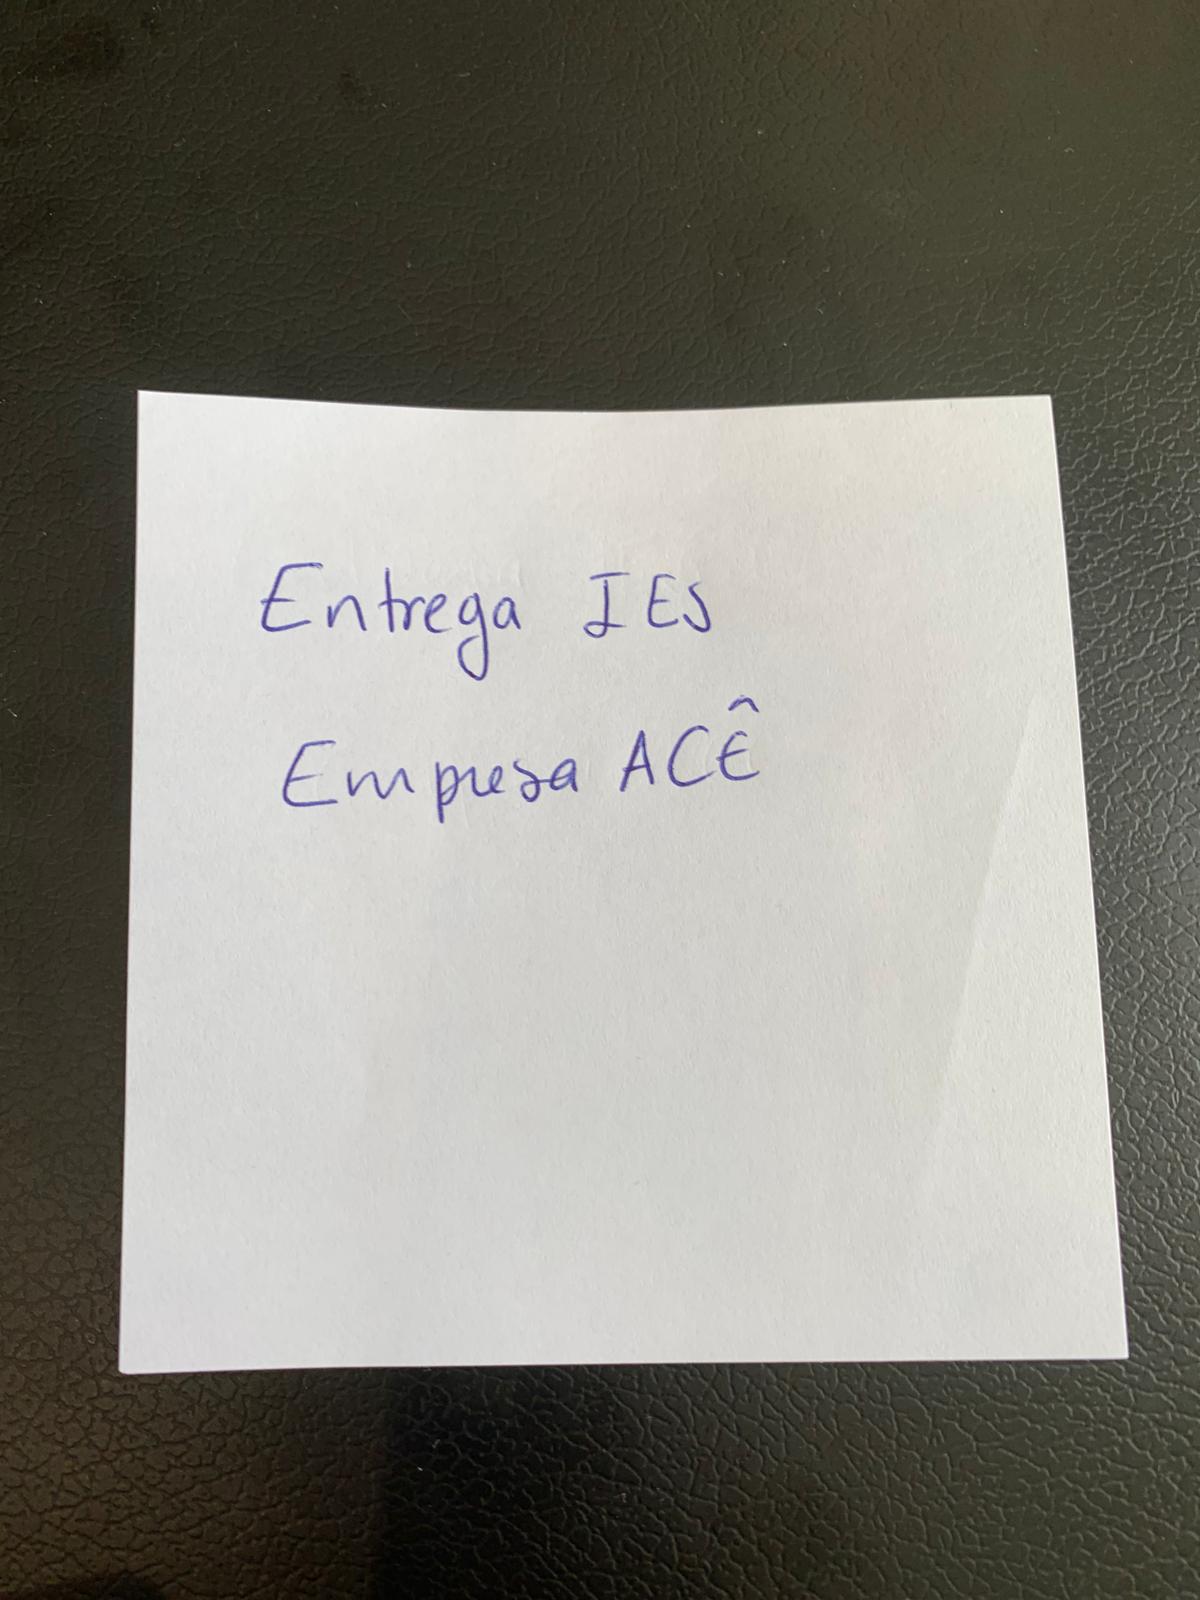 Entrega IES
Empresa ACÊ